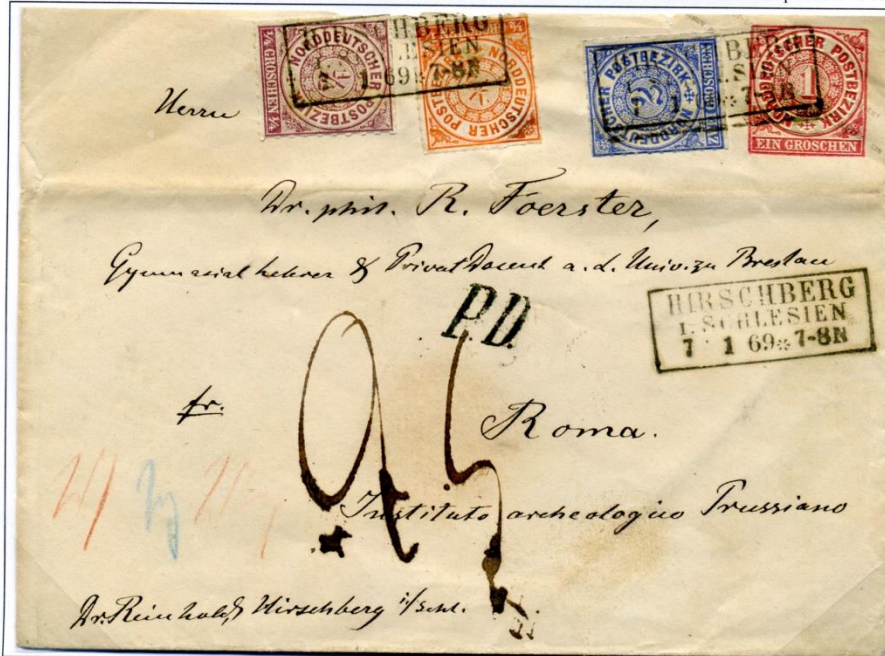 1/4 GROSCHEN 1/4
NORDDEUTSCHER
POSTBEZIRK
1/4
NORDDEUTSCHER POSTBEZIRK
1/2
2
NORDDEUTSCHER POSTBEZIRK
1
NORDDEUTSCHER POSTBEZIRK
EIN GROSCHEN
HBERG
LESIEN
1 69 7-8N
7 1
Herrn
Dr. phil. R. Foerster,
Gymnasiallehrer & Privat Docent a. d. Univ. zu Breslau
P.D.
HIRSCHBERG
I. SCHLESIEN
7 1 69 7-8N
fr.
Roma.
Instituto archeologico Prussiano
Dr. Reinhold, Hirschberg i/Schl.